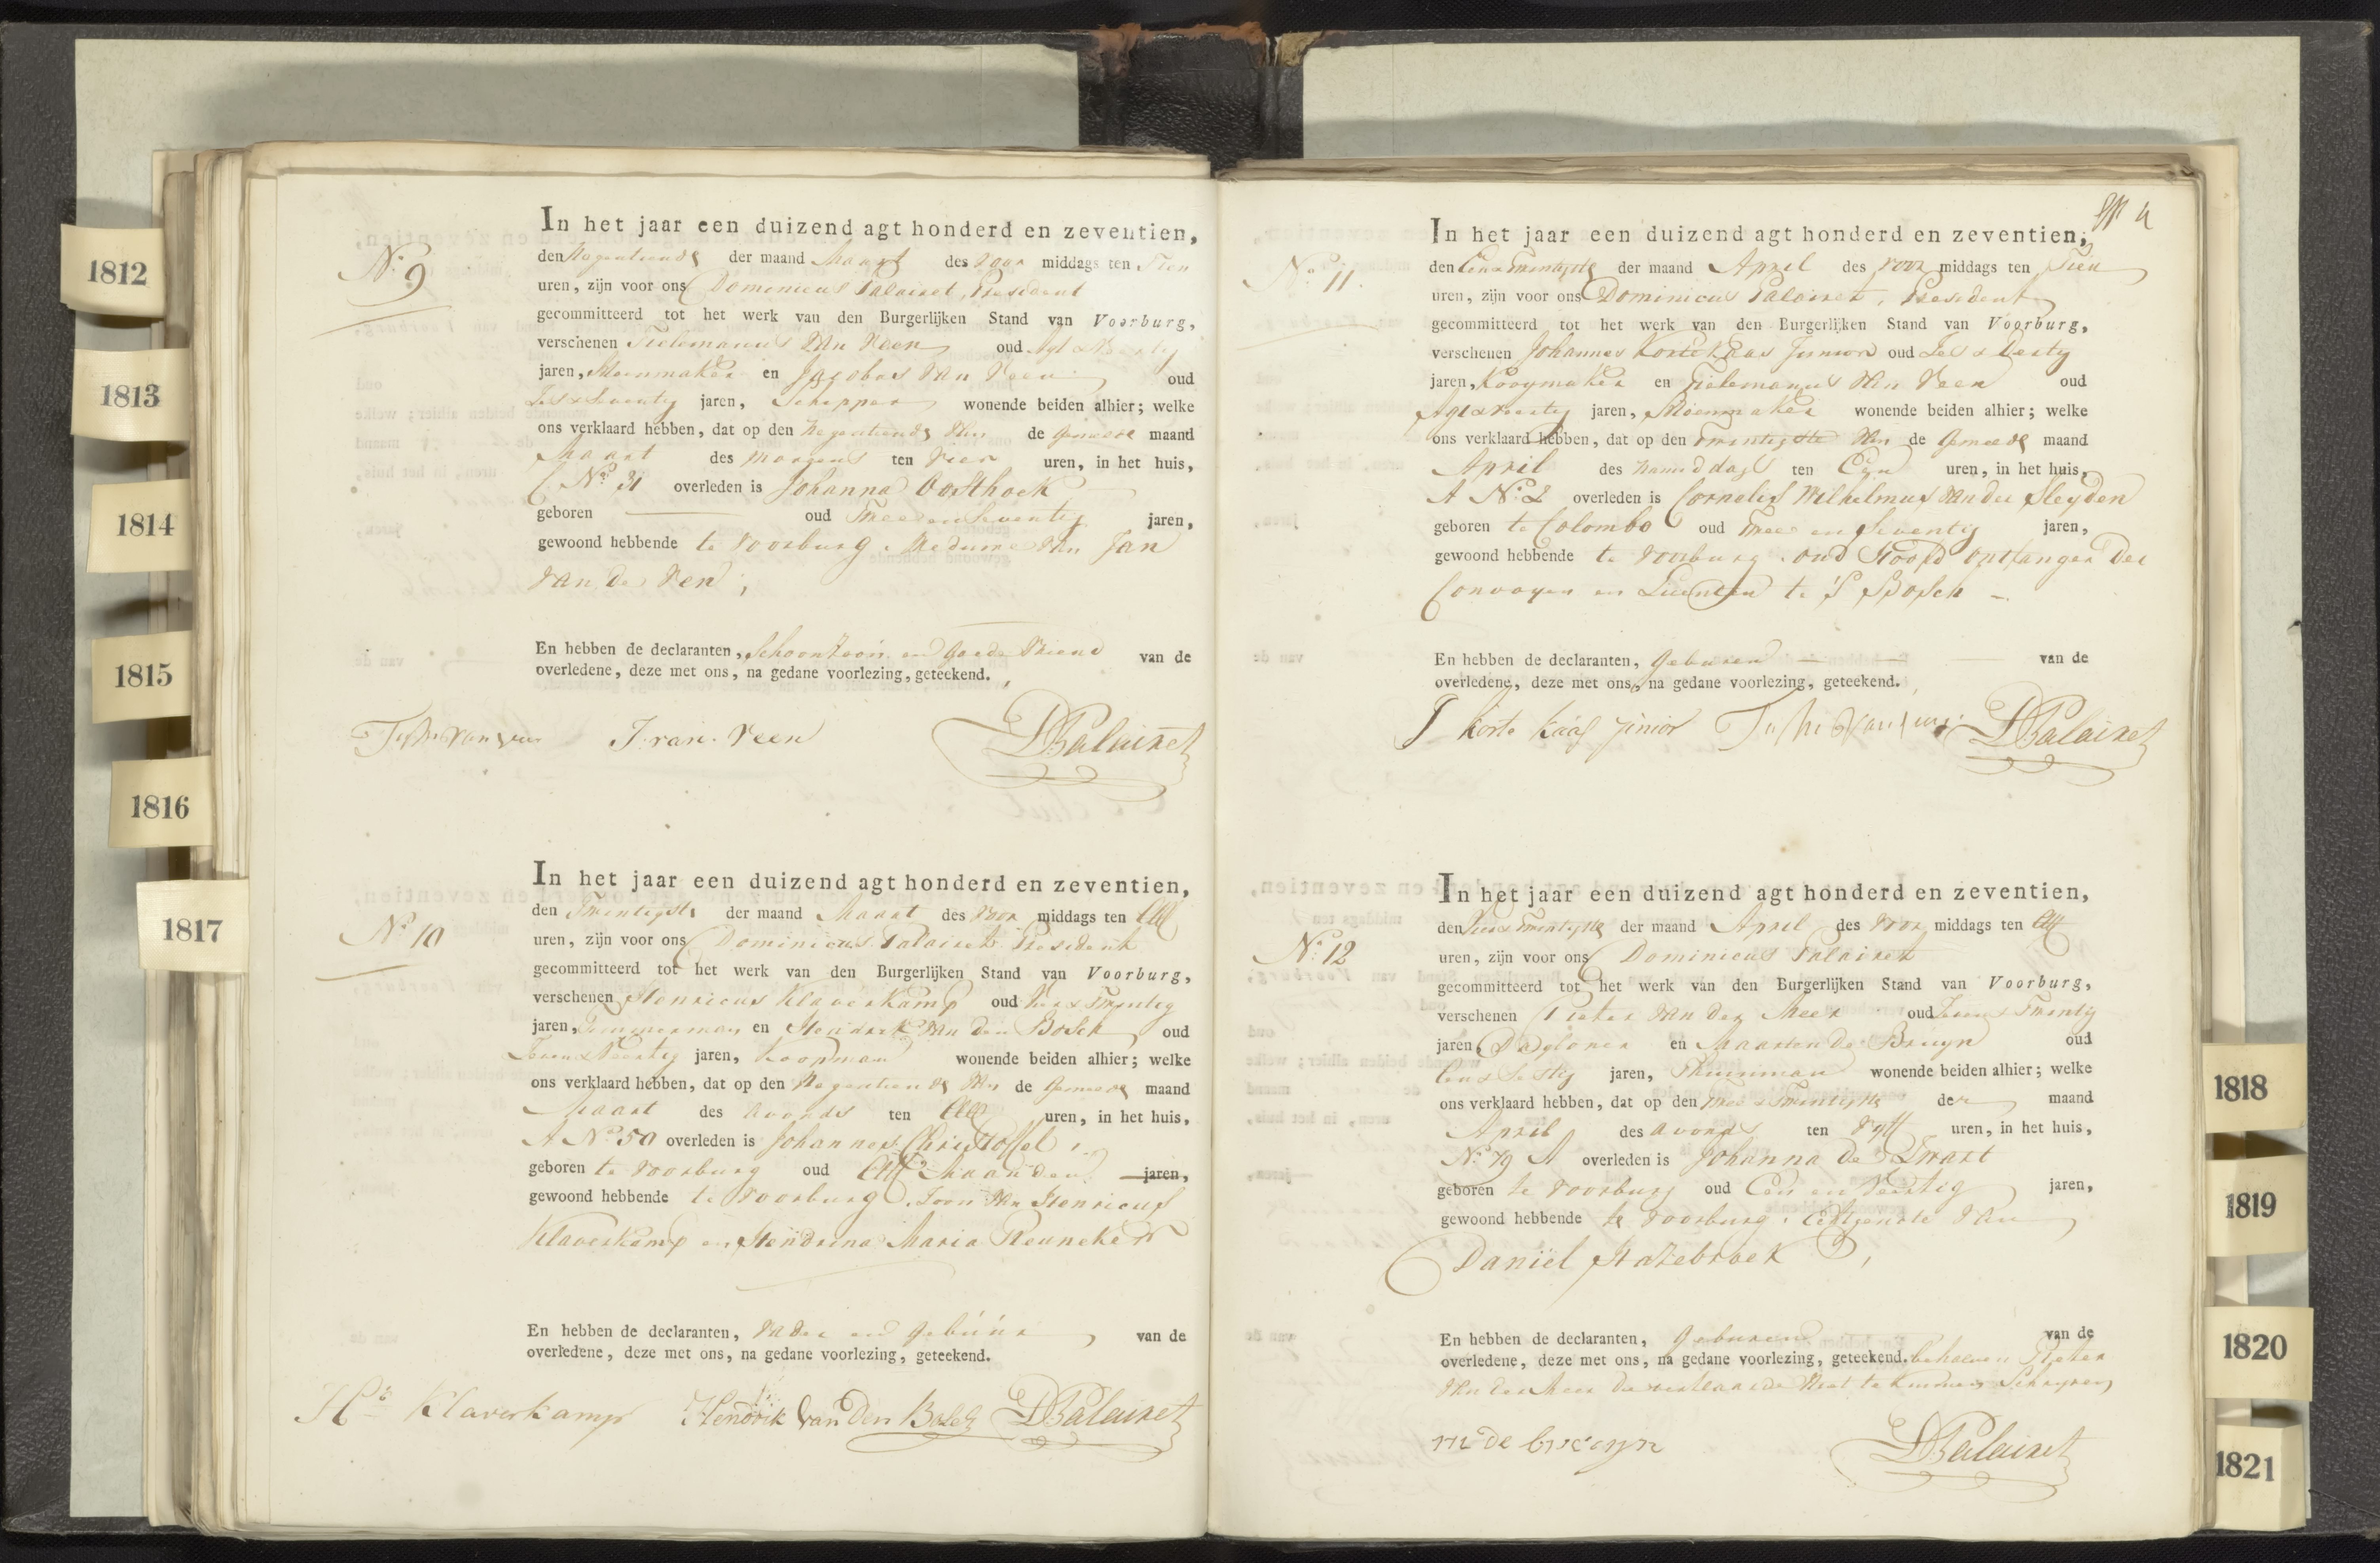 1812
1813
1814
1815
1816
1817
No 9
In het jaar een duizend agt honderd en zeventien,
den Negentiende der maand Maart des voor middags ten Tien
uren, zijn voor ons Dominicus Palairet, President
gecommitteerd tot het werk van den Burgerlijken Stand van Voorburg,
verschenen Tielemanus van Veen oud Agt &
jaren, Molenmaker en Jacobus van Veen oud
Ses & Seventig jaren, Schipper wonende beiden alhier; welke
ons verklaard hebben, dat op den Negentiende van de Gemelde maand
Maart des Morgens ten vier uren, in het huis,
C No 31 overleden is Johanna Oosthoek
geboren oud Twee en Seventig jaren,
gewoond hebbende te Voorburg. Weduwe van Jan
van der Ven;
En hebben de declaranten, Schoonzoon en Goede Vriend van de
overledene, deze met ons, na gedane voorlezing, geteekend.
J: van Veen DPalairet
No 10
In het jaar een duizend agt honderd en zeventien,
den Twintigste der maand Maart des voor middags ten Elf
uren, zijn voor ons Dominicus Palairet President
gecommitteerd tot het werk van den Burgerlijken Stand van Voorburg,
verschenen Henricus Klaverkamp oud & Twintig
jaren, Timmerman en Hendrik van den Bosch oud
Seven & Veertig jaren, Koopman wonende beiden alhier; welke
ons verklaard hebben, dat op den Negentiende van de Gemelde maand
Maart des avonds ten Elf uren, in het huis,
A No 50 overleden is Johannes Christoffel
geboren te Voorburg oud Elf Maanden jaren,
gewoond hebbende te Voorburg. Zoon van Henricus
Klaverkamp en Hendrina Maria Reuneker
En hebben de declaranten, Vader en Gebuur van de
overledene, deze met ons, na gedane voorlezing, geteekend.
Hs Klaverkamp Hendrik van Den Bosch DPalairet
4
No 11.
In het jaar een duizend agt honderd en zeventien,
den Een & Twintigste der maand April des voor middags ten Tien
uren, zijn voor ons Dominicus Palairet, President
gecommitteerd tot het werk van den Burgerlijken Stand van Voorburg,
verschenen Johannes Kortekaas Junior oud Ses & Dertig
jaren, Kooymaker en Tielemanus van Veen oud
Agt & Veertig jaren, Molenmaker wonende beiden alhier; welke
ons verklaard hebben, dat op den Twintigste van de Gemelde maand
April des namiddags ten Een uren, in het huis,
A No 2 overleden is Cornelis Wilhelmus van der Sleyden
geboren te Colombo oud Twee en Seventig jaren,
gewoond hebbende te Voorburg. oud Hoofd ontfanger der
Convoyen en Licenten te 'S Bosch
En hebben de declaranten, Geburen van de
overledene, deze met ons, na gedane voorlezing, geteekend.
J korte kaas junior DPalairet
No 12
In het jaar een duizend agt honderd en zeventien,
den & Twintigste der maand April des voor middags ten Elf
uren, zijn voor ons Dominicus Palairet
gecommitteerd tot het werk van den Burgerlijken Stand van Voorburg,
verschenen Pieter van der Meer oud Seven & Twintig
jaren, Dagloner en Maarten de Bruyn oud
Een & Sestig jaren, Thuinman wonende beiden alhier; welke
ons verklaard hebben, dat op den Twee & Twintigste der maand
April des avonds ten Vyff uren, in het huis,
No 79 A overleden is Johanna de Swart
geboren te Voorburg oud Een en Veertig jaren,
gewoond hebbende te Voorburg. Echtgenote van
Daniël Hazebroek
En hebben de declaranten, Geburen van de
overledene, deze met ons, na gedane voorlezing, geteekend. behalven Pieter
van der Meer die verklaarde Niet te kunnen Schryven
m de bruoyn DPalairet
1818
1819
1820
1821